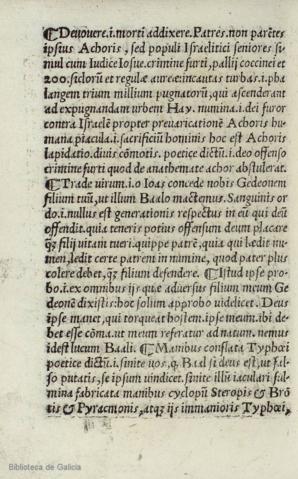 ¶Deuouere.i.morti addixere. Patres.non parētes
ipsius Achoris, sed populi Israelitici seniores si
mul cum Iudice Iosue.crimine furti, pallij coccinei et
200. siclorū et regulæ aureæ incautas turbas.i.pha
langem trium millium pugnatorū, qui ascenderant
ad expugnandam urbem Hay. numina.i.dei furor
contra Israelē propter preuaricationē Achoris hu
mana piacula.i.sacrificiū hominis hoc est Achoris
lapidatio.diuis cōmotis. poetice dictū.i.deo offenso
crimine furti quod de anathemate achor abstulerat.
¶Trade uirum.i.o Ioas concede nobis Gedeonem
filium tuū, ut illum Baalo mactemus. Sanguinis or
do.i.nullus est generationis respectus in eū qui deū
offendit.quia teneris potius offensum deum placare
q̄ʒ filij uitam tueri.quippe patrē, quia qui lædit nu-
men, lædit certe patrem in numine, quod pater plus
colere debet, q̄ʒ filium defendere. ¶Istud ipse pro-
bo.i.ex omnibus ijs quæ aduersus filium meum Ge
deonē dixistis: hoc solum approbo uidelicet. Deus
ipse manet, qui torqueat hostem.ipse meum.ibi de-
bet esse cōma.ut meum referatur ad natum. nemus
idest lucum Baali. ¶Manibus conflata Typhœi
poetice dictū.i.sinite uos, q. Baal si deus est, ut fal-
so putatis, se ipsum uindicet. sinite illū iaculari ful-
mina fabricata manibus cyclopū Steropis & Brō
tis & Pyracmonis, atqʒ ijs immanioris Typhœi,
Biblioteca de Galicia